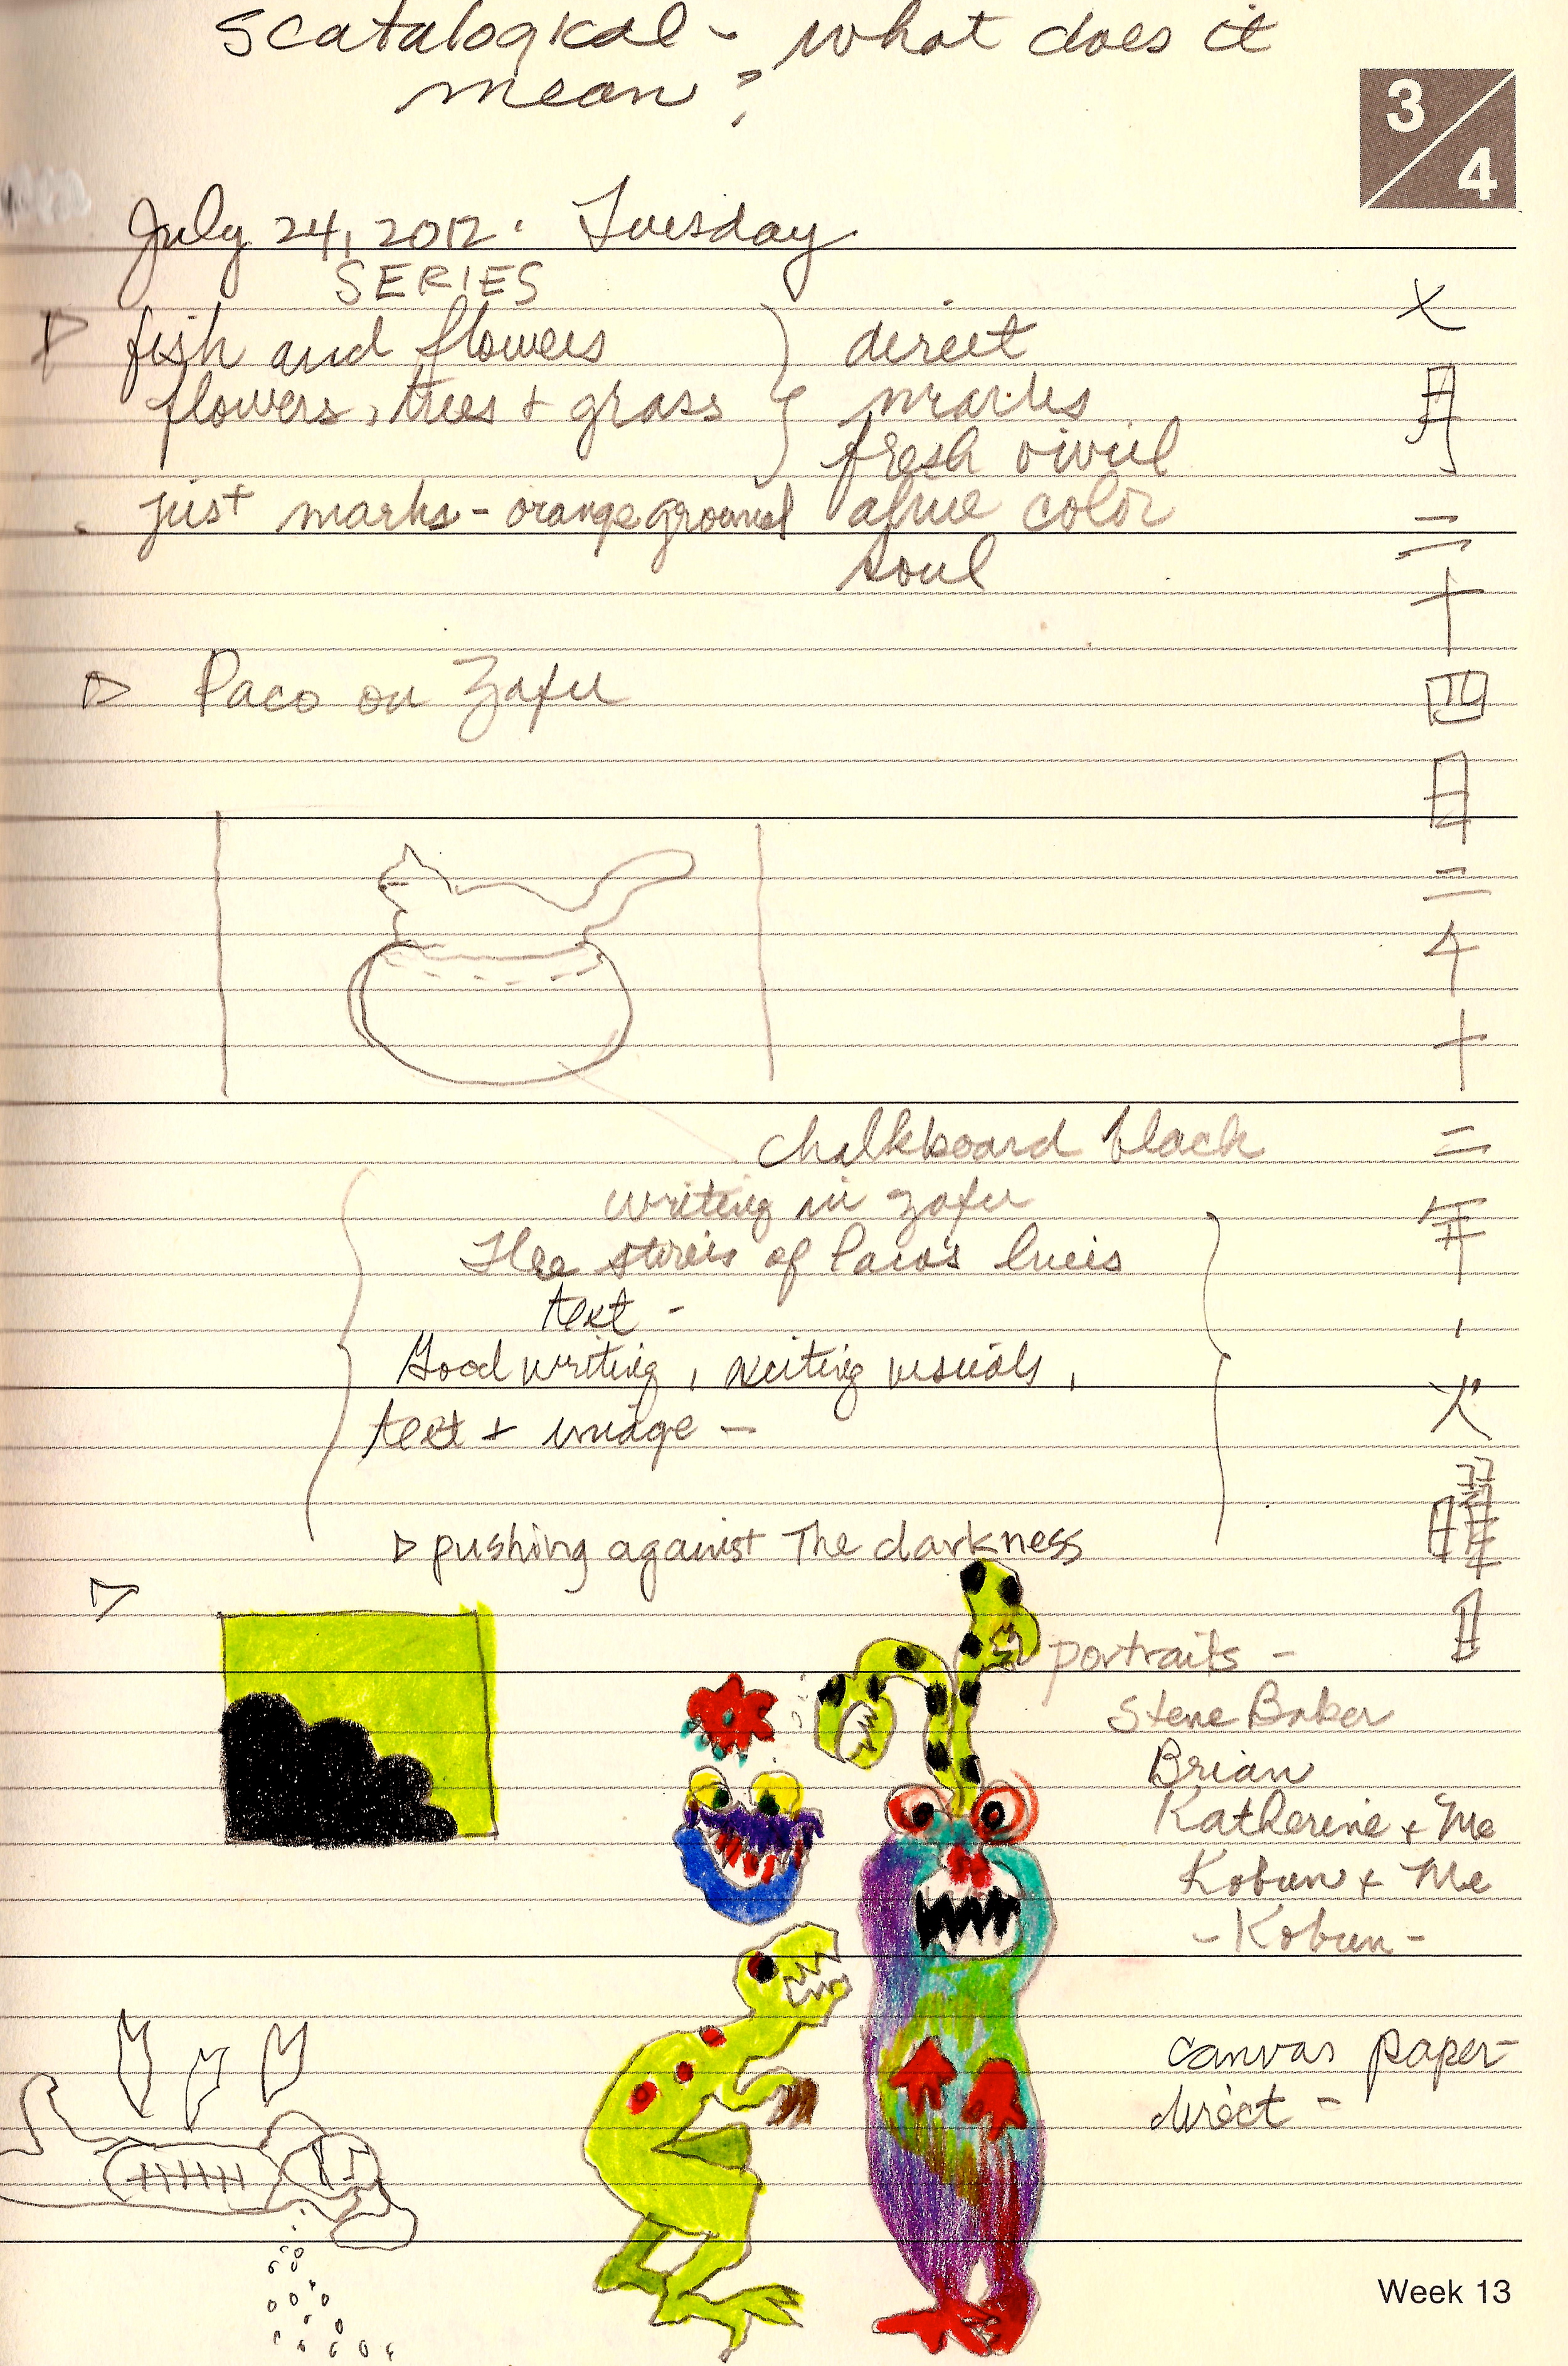 scatalogical - what does it
mean?
3/4
July 24, 2012. Tuesday
SERIES
fish and flowers } direct
flowers, trees + grass marks
fresh vivid
just marks - orange ground alive color
soul
Paco on Zafu
chalkboard black
writing in zafu
The stories of Paco's lives
text -
Good writing, exciting visuals,
text + image -
pushing against The darkness
portraits -
Steve Baker
Brian
Katherine + Me
Kobun + Me
- Kobun -
canvas paper -
direct -
七
月
二
十
四
日
二
千
十
二
年
,
火
曜
日
Week 13